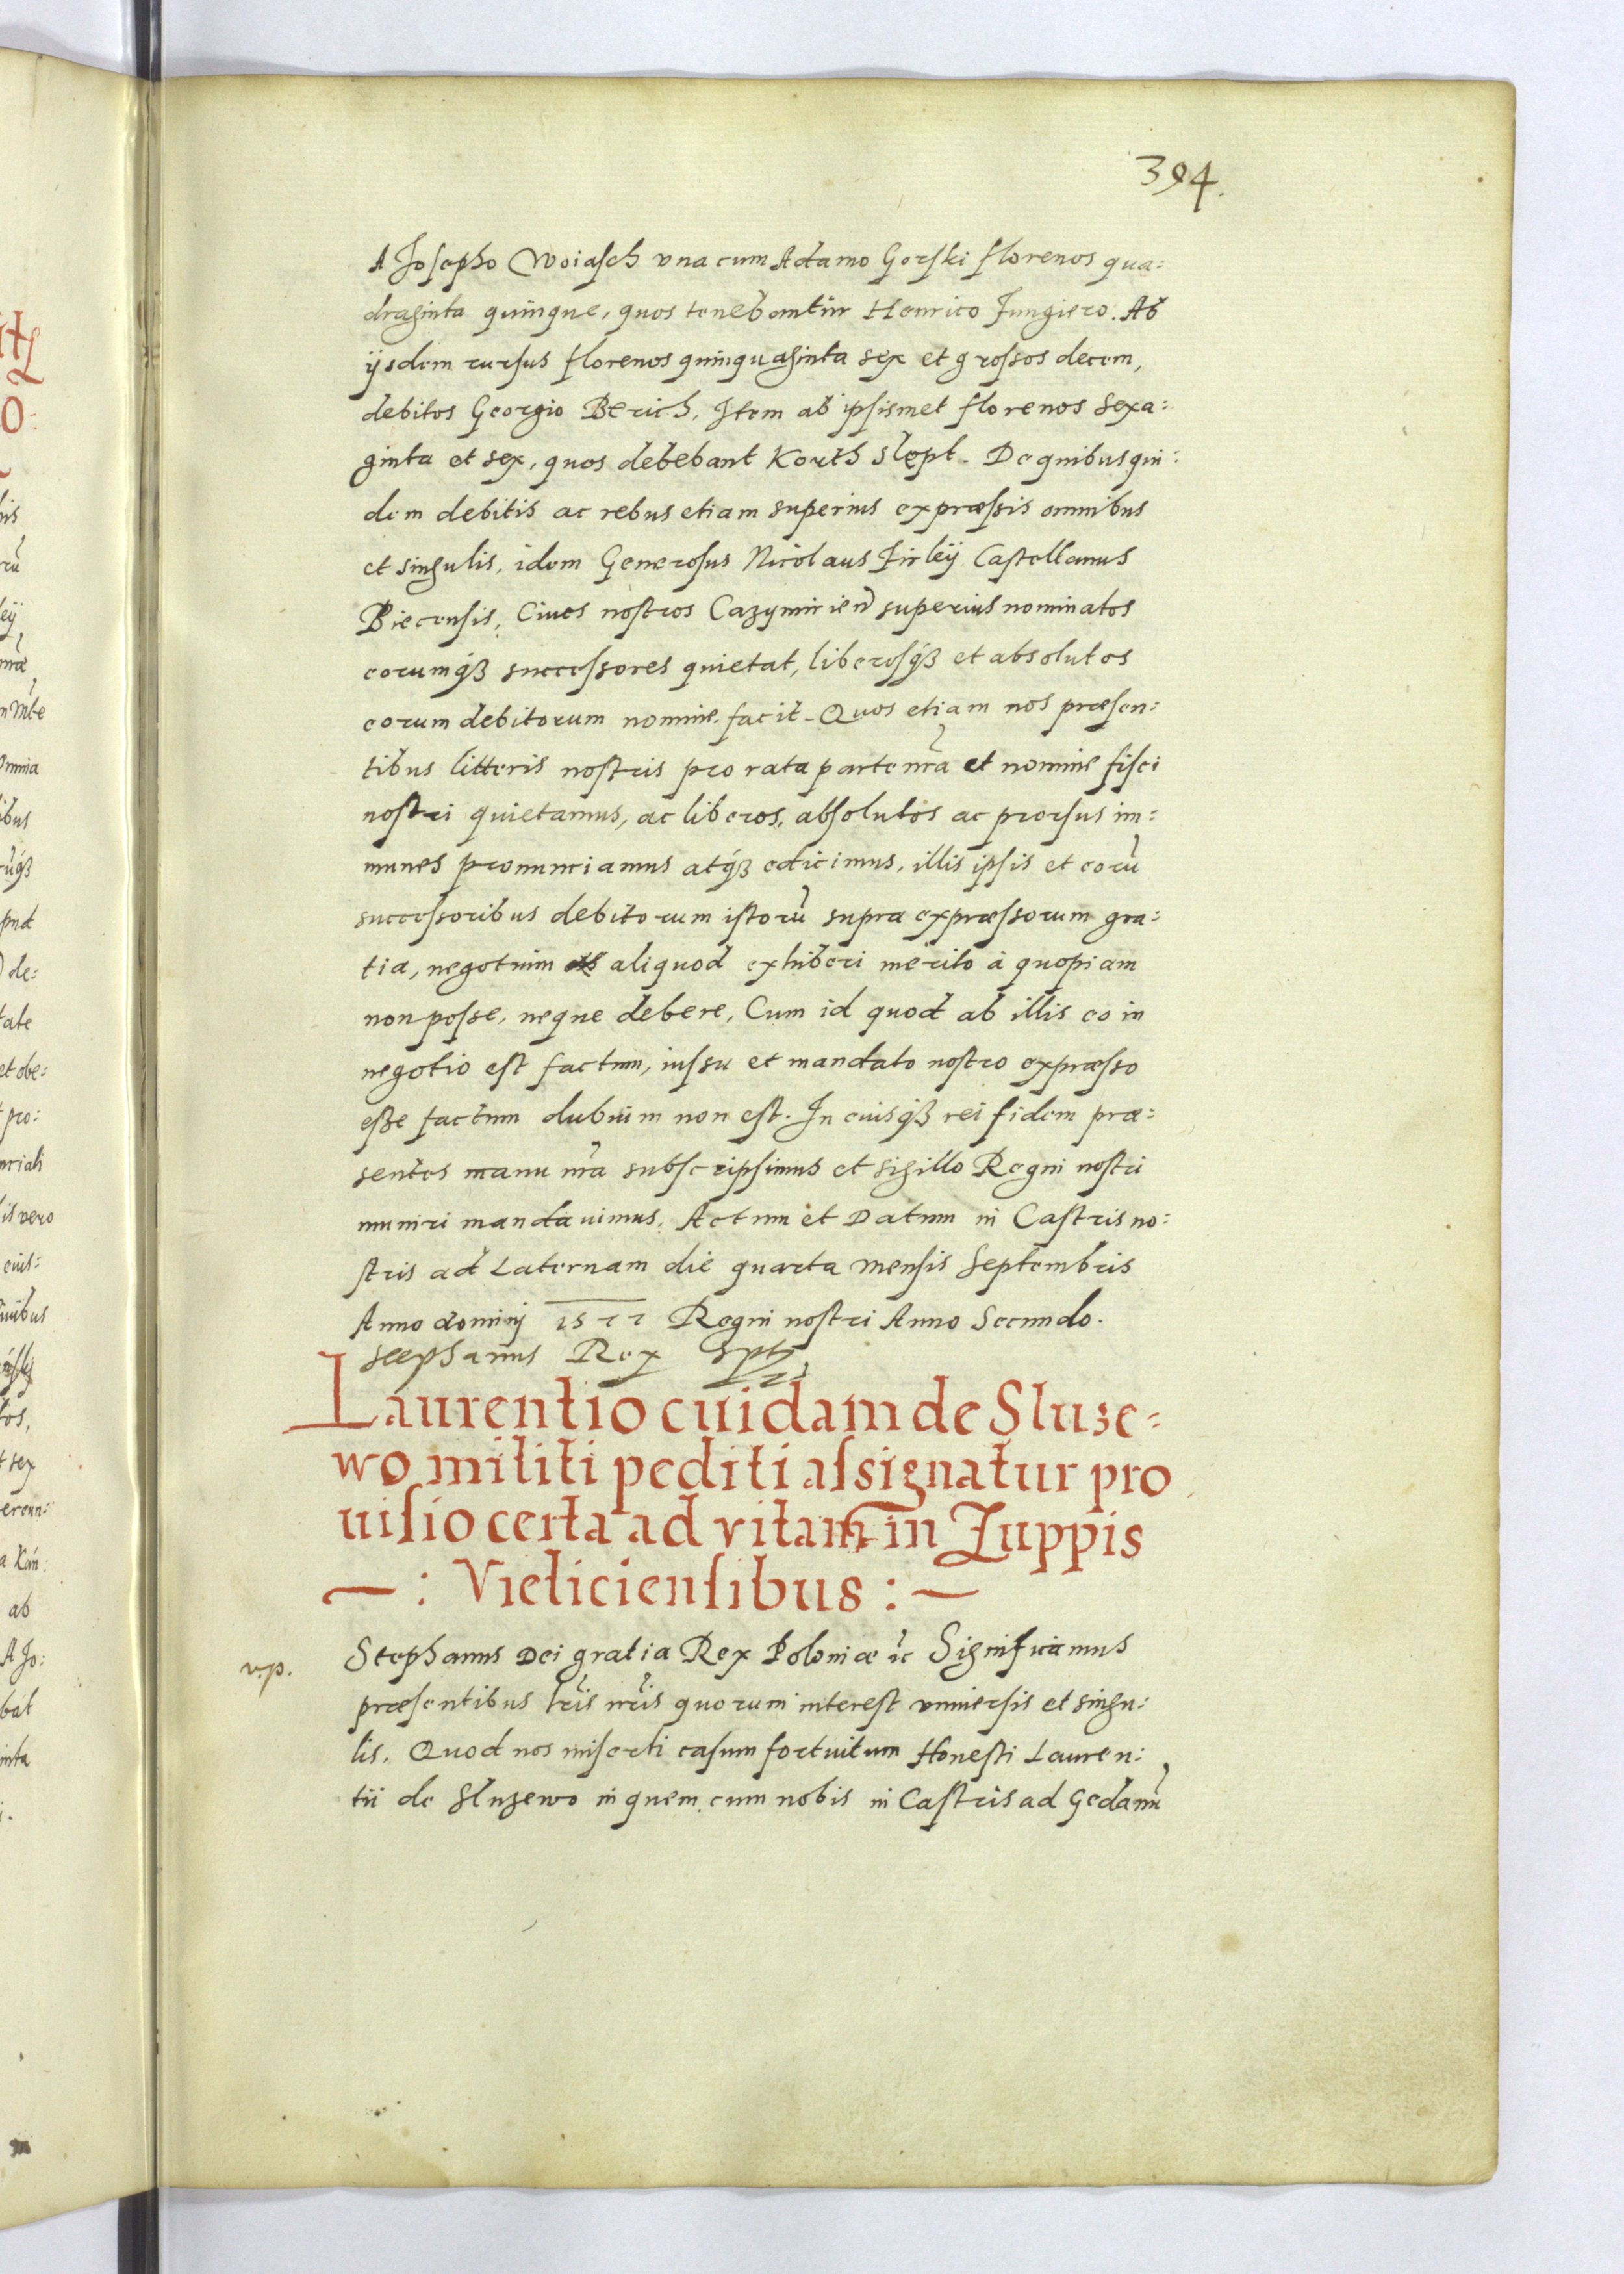 394.
A Josepho Woiasch vna cum Adamo Gorski florenos qua:
draginta quinque, quos tenebantur Henrico Jungiero. Ab
ijsdem rursus florenos quinquaginta sex et grossos decem,
debitos Georgio Berich, Item ab ipsismet florenos sexa:
ginta et sex, quos debebant Korth Slept. De quibus qui:
dem debitis ac rebus etiam superius expræssis omnibus
et singulis, idem Generosus Nicolaus Firleij Castellanus
Biecensis, Ciues nostros Cazymirien̄ superius nominatos
eorumq́ȝ successores quietat, liberosq́ȝ et absolutos
eorum debitorum nomine facit. Quos etiam nos præsen:
tibus litteris nostris pro rata parte nr̃a et nomine fisci
nostri quietamus, ac liberos, absolutos ac prorsus im:
munes pronunciamus atq́ȝ edicimus, illis ipsis et eorũ
successoribus debitorum istorũ supra expræssorum gra:
tia, negotium aliquod exhiberi merito à quopiam
non posse, neque debere, Cum id quod ab illis eo in
negotio est factum, iussu et mandato nostro expræsso
esse factum dubium non est. In cuiusq́ȝ rei fidem præ:
sentes manu nr̃a subscripsimus et sigillo Regni nostri
muniri mandauimus. Actum et Datum in Castris no:
stris ad Laternam die quarta mensis Septembris
Anno dominij 1577 Regni nostri Anno Secundo.
Stephanus Rex
Laurentio cuidam de Sluze=
wo militi pediti assignatur pro
uisio certa ad vitam in Zuppis
— : Vieliciensibus : —
v.p.
Stephanus Dei gratia Rex Poloniæ ꝛc Significamus
præsentibus lr̃is nr̃is quorum interest vniuersis et singu:
lis. Quod nos miserti casum fortuitum Honesti Lauren:
tii de Sluzewo in quem cum nobis in Castris ad Gedanũ